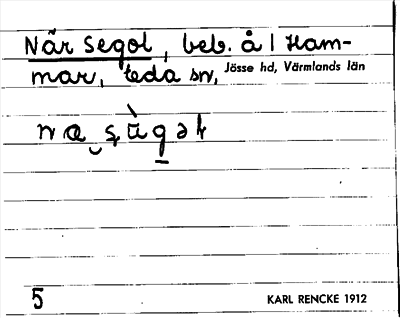 När Segol, beb. å l Ham-
mar, Eda sn, Jösse hd, Värmlands län
5 KARL RENCKE 1912